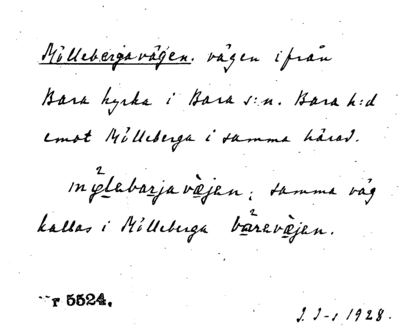 Möllebergavägen. vägen ifrån
Bara kyrka i Bara s:n. Bara h:d
emot Mölleberga i samma härad.
mỳlabarjavæjen; samma väg
kallas i Mölleberga bàravæjen.
r 5524.
J. I-s 1928.